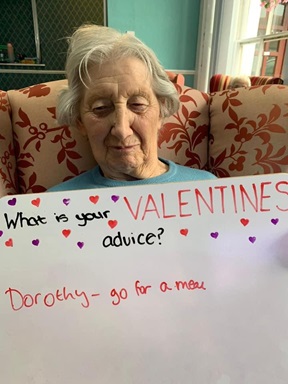 What is your VALENTINES
advice?
Dorothy- go for a meal